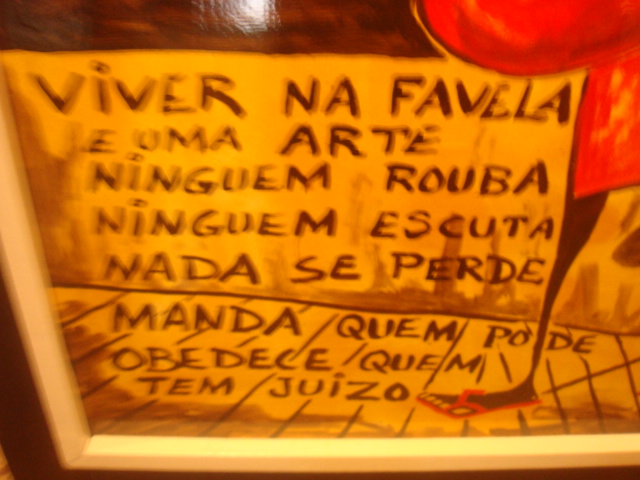 ViVER NA FAVELA
E UMA ARTE
NiNGUEM ROUBA
NiNGUEM ESCUTA
NADA SE PERDE
MANDA QUEM PODE
OBEDECE QUEM
TEM JUiZO